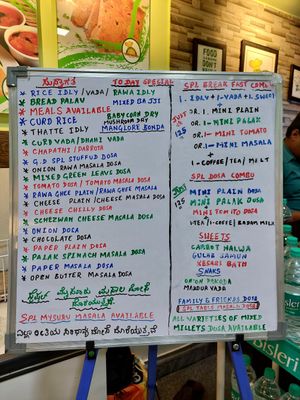 ಸುಸ್ವಾಗತ
TO DAY SPECIAL
* RICE IDLY/VADA/RAWA IDLY
* BREAD PALAV
MIXED BAJJI
* MEALS AVAILABLE
* CURD RICE
BABYCORN DRY
MUSHRUM DRY
* THATTE IDLY
MANGLORE BONDA
* CURD VADA/DHAHI VADA
* CHAPATHI/PARROTA
* G.D SPL STUFFUD DOSA
* ONION RAWA MASALA DOSA
* MIXED GREEN LEAVE DOSA
* TOMATO DOSA/TOMATO MASALA DOSA
* RAWA GHEE PLAIN/RAWA GHEE MASALA
* CHEESE PLAIN/CHEESE MASALA DOSA
* CHEESE CHILLY DOSA
* SCHEZWAN CHEESE MASALA DOSA
* ONION DOSA
* CHOCOLATE DOSA
* PAPER PLAIN DOSA
* PALAK SPINACH MASALA DOSA
* PAPER MASALA DOSA
* OPEN BUTTER MASALA DOSA
ಸ್ಪೆಷಲ್ ಮೈಸೂರು ಮಸಾಲ ದೋಸೆ
ದೊರೆಯುತ್ತದೆ
SPL MYSURU MASALA AVAILABLE
ಎಲ್ಲಾ ರೀತಿಯ ಸಿರಿಧಾನ್ಯ ದೋಸೆ ದೊರೆಯುತ್ತವೆ
SPL BREAK FAST COMBO
1. IDLY+1-VADA+1 SWEET
+
OR.1. MINI PLAIN
OR.1-MINI PALAK
OR.1-MINI TOMATO
OR.1-MINI MASALA
+
1-COFFEE/TEA/MILK
JUST
125
SPL DOSA COMBO
MINI PLAIN DOSA
MINI PALAK DUSA
MINI TOMATO DOSA
125
SWEETS
CARROT HALWA
GULAB JAMUN
KESARI BATH
SNAKS
ONION PAKODA
MADDUR VADA
FAMILY & FRIENDS DOSA
SPL TABLE MASALA DOSA
ALL VARIETIES OF MIXED
MILLETS DOSA AVAILABLE
Bisleri